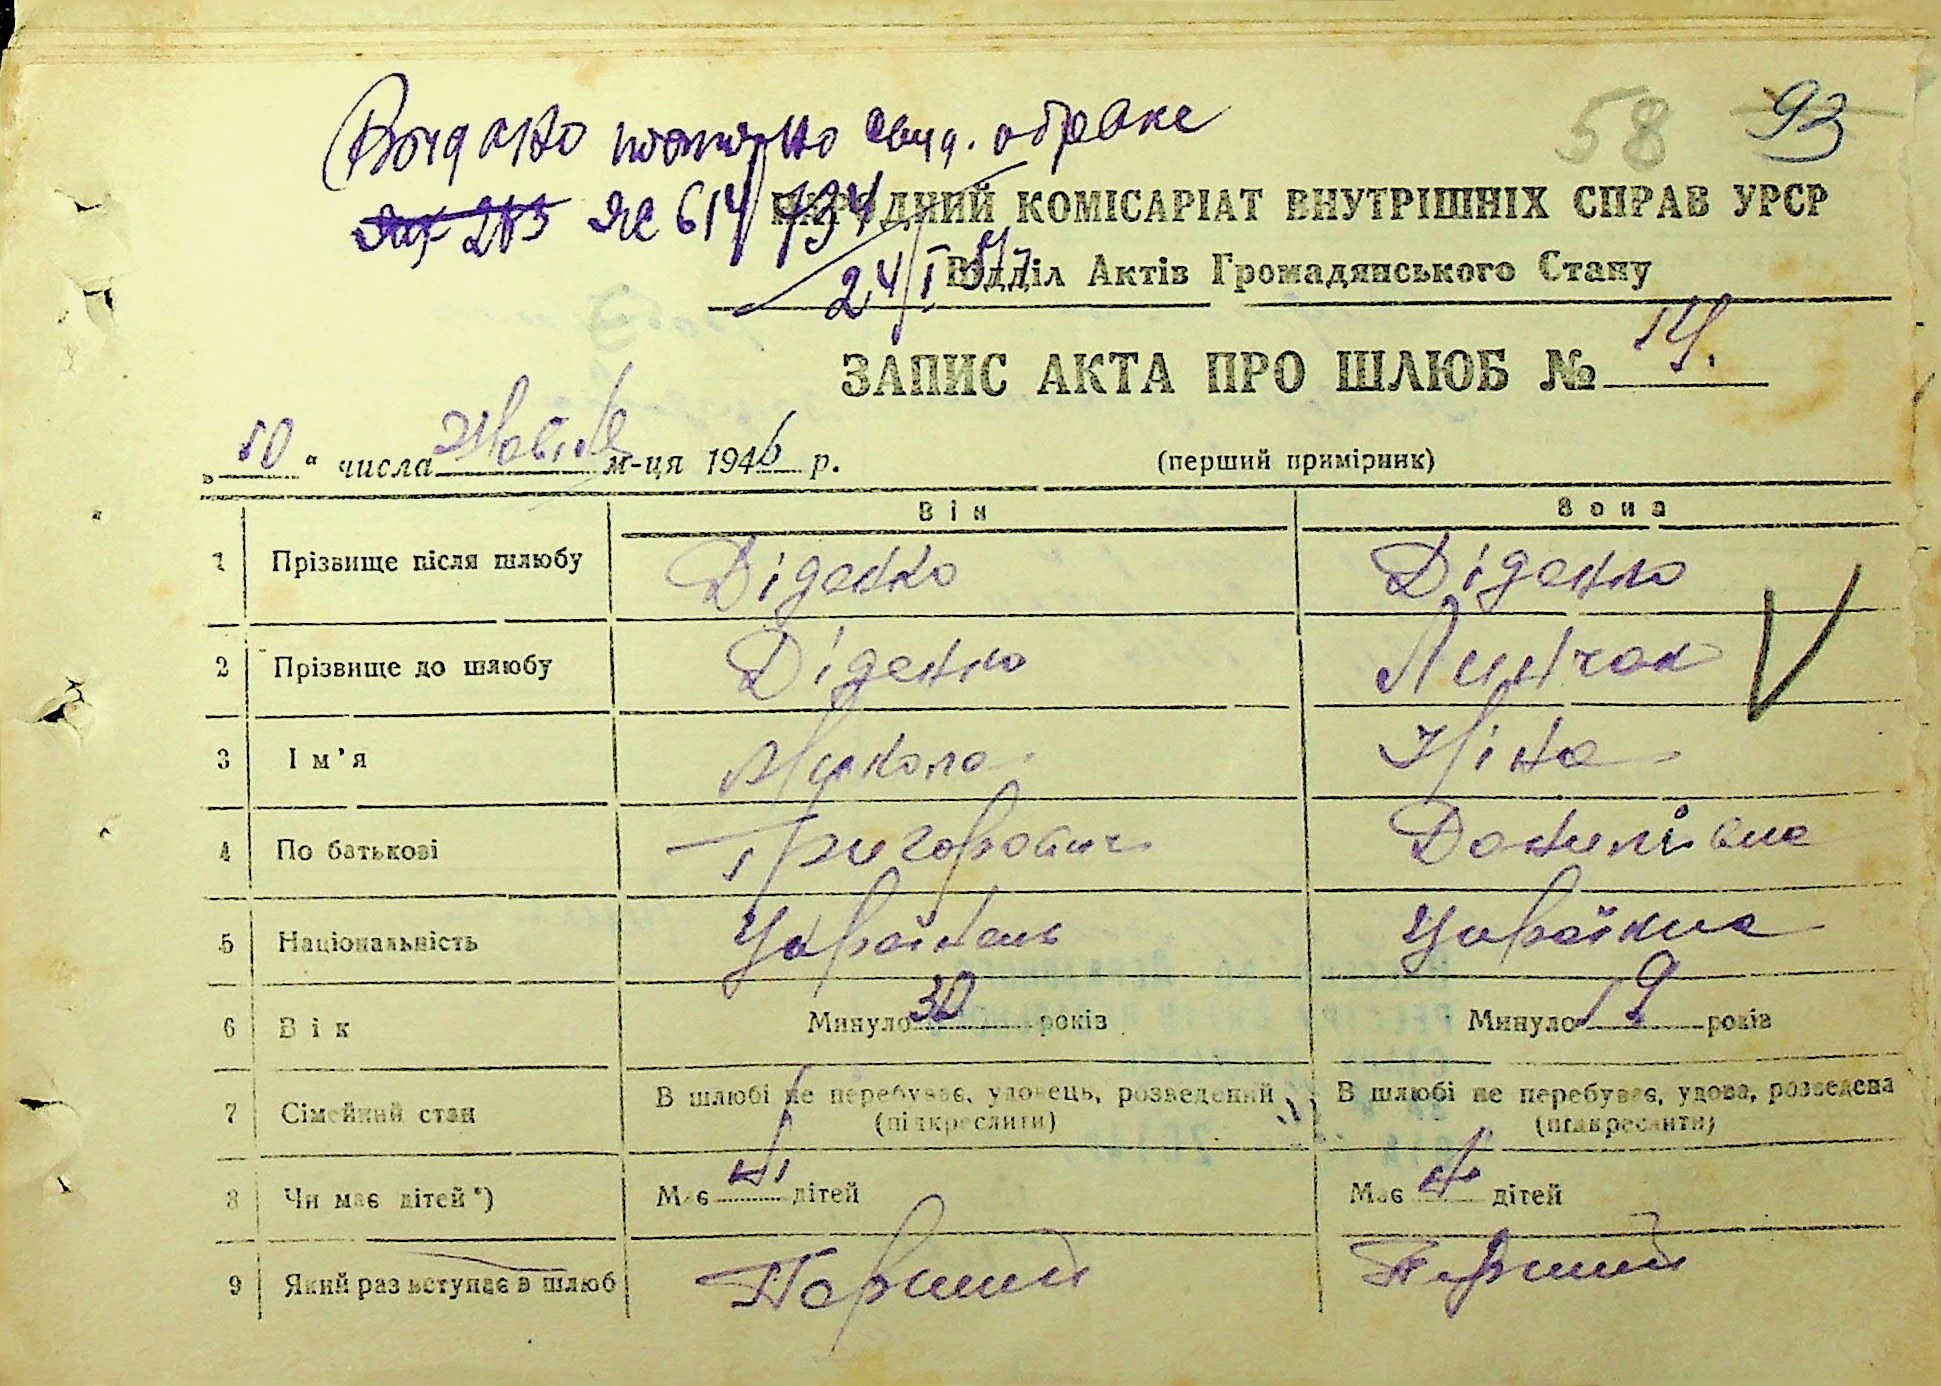 Выдано повторно свид. о браке
58 93
№ 614/734
НАРОДНИЙ КОМІСАРІАТ ВНУТРІШНІХ СПРАВ УРСР
24/I 57
Відділ Актів Громадянського Стану
ЗАПИС АКТА ПРО ШЛЮБ № 14.
„ 10 “ числа м-ця 1946 р. (перший примірник)
Він Вона
1 Прізвище після шлюбу Діденко Діденко
2 Прізвище до шлюбу Діденко
3 Ім'я Микола Ніна
4 По батькові Григорович Данилівна
5 Національність Українець Українка
6 Вік Минуло 30 років Минуло 19 років
7 Сімейний стан В шлюбі не перебуває, удовець, розведений В шлюбі не перебуває, удова, розведена
(підкреслити) (підкреслити)
8 Чи має дітей*) Має ні дітей Має дітей
9 Який раз вступає в шлюб Перший Перший